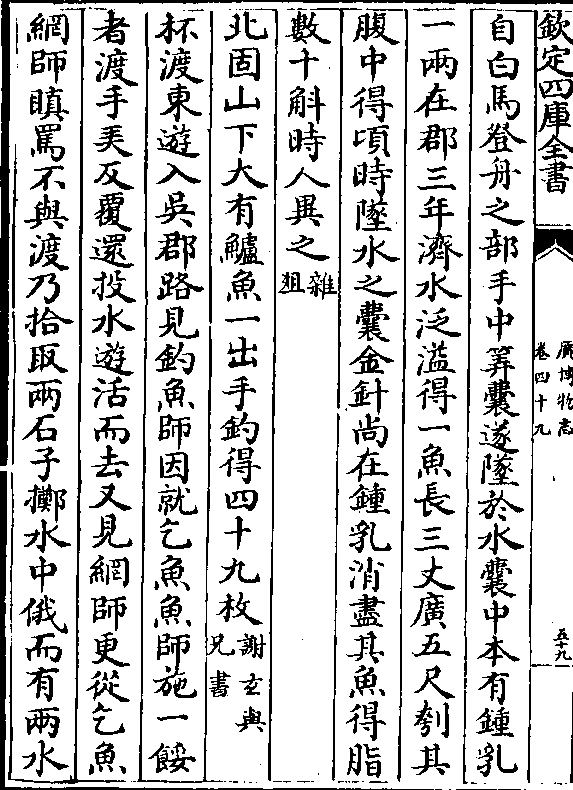 欽定四庫全書
廣博物志
卷四十九
五十九
自白馬登舟之部手中筭囊遂墜於水囊中本有鍾乳
一兩在郡三年濟水泛溢得一魚長三丈廣五尺刳其
腹中得頃時墜水之囊金針尚在鍾乳消盡其魚得脂
數十斛時人異之雜
俎
北固山下大有鱸魚一出手釣得四十九枚謝玄與
兄書
杯渡東遊入吳郡路見釣魚師因就乞魚魚師施一餧
者渡手弄反覆還投水遊活而去又見網師更從乞魚
網師瞋罵不與渡乃拾取兩石子擲水中俄而有兩水